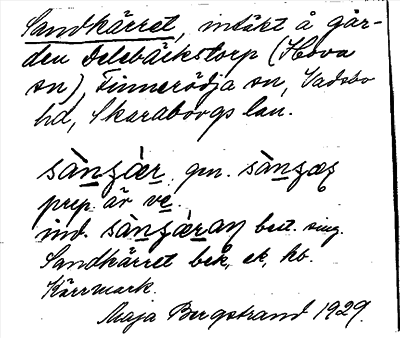 Sandkärret, intäkt å går-
den Delebäckstorp (Hova
sn) Finnerödja sn, Vadsbo
hd, Skaraborgs län.
sànʒær gm. sànʒæs
prep. är ve.
ind. sànʒæran best. sing.
Sandkärret bek, ek, kb.
Kärrmark.
Maja Bergstrand 1929.